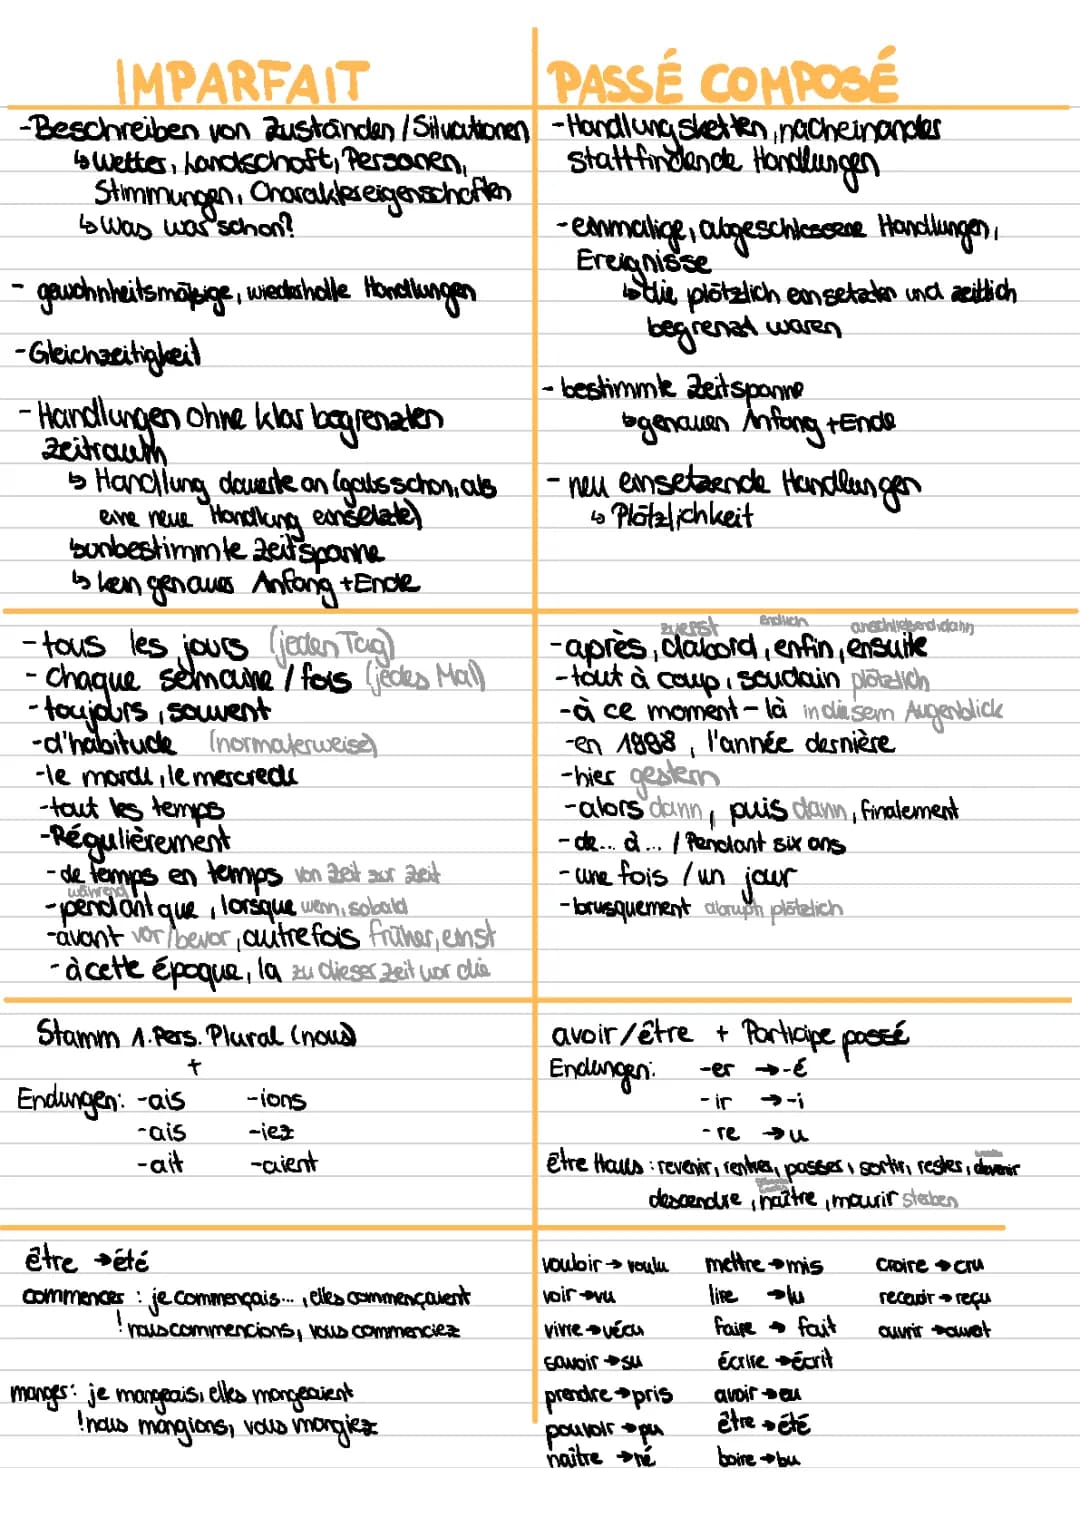 IMPARFAIT
-Beschreiben von Zuständen / Situationen
↳ Wetter, Landschaft, Personen,
Stimmungen, Charaktereigenschaften
↳ Was war schon?
- gewohnheitsmäßige, wiederholte Handlungen
-Gleichzeitigkeit
- Handlungen ohne klar begrenzten
Zeitraum
↳ Handlung dauerte an (gabs schon, als
eine neue Handlung einsetzte)
↳ unbestimmte Zeitspanne
↳ kein genaues Anfang + Ende
PASSÉ COMPOSÉ
-Handlungsketten, nacheinander
stattfindende Handlungen
-einmalige, abgeschlossene Handlungen,
Ereignisse
↳ die plötzlich einsetzten und zeitlich
begrenzt waren
- bestimmte Zeitspanne
↳ genauen Anfang + Ende
- neu einsetzende Handlungen
↳ Plötzlichkeit
-tous les jours (jeden Tag)
- Chaque semaine / fois (jedes Mal)
- toujours, souvent
-d'habitude (normalerweise)
-le mardi, le mercredi
-tout les temps
-Régulièrement
-de temps en temps von Zeit zur Zeit
während
-pendant que, lorsque wenn, sobald
-avant vor/bevor, autrefois früher, einst
-à cette époque, la zu dieser Zeit vor die
zuerst endlich anschließend, dann
-après, dabord, enfin, ensuite
-tout à coup, soudain plötzlich
-à ce moment-là in diesem Augenblick
-en 1998, l'année dernière
-hier gestern
-alors dann, puis dann, finalement
-de... à... / Pendant six ans
-une fois / un jour
-brusquement abrupt, plötzlich
Stamm 1. Pers. Plural (nous)
+
Endungen: -ais -ions
-ais -iez
-ait -aient
avoir/être + Participe passé
Endungen: -er → -é
-ir → -i
-re → u
être Haus: revenir, rentrer, passer, sortir, rester, devenir
descendre, naître, mourir sterben
être → été
commencer: je commençais..., elles commençaient
! nous commencions, vous commenciez
manger: je mangeais, elles mangeaient
! nous mangions, vous mangiez
vouloir → voulu mettre → mis croire → cru
voir → vu lire → lu recevoir → reçu
vivre → vécu faire → fait ouvrir → ouvert
savoir → su écrire → écrit
prendre → pris avoir → eu
pouvoir → pu être → été
naître → né boire → bu